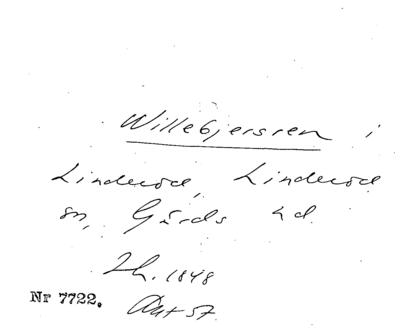 Willebjersren i
Linderöd, Linderöd
sn, Gärds hd.
Lh. 1848
Nr 7722. Akt 57.